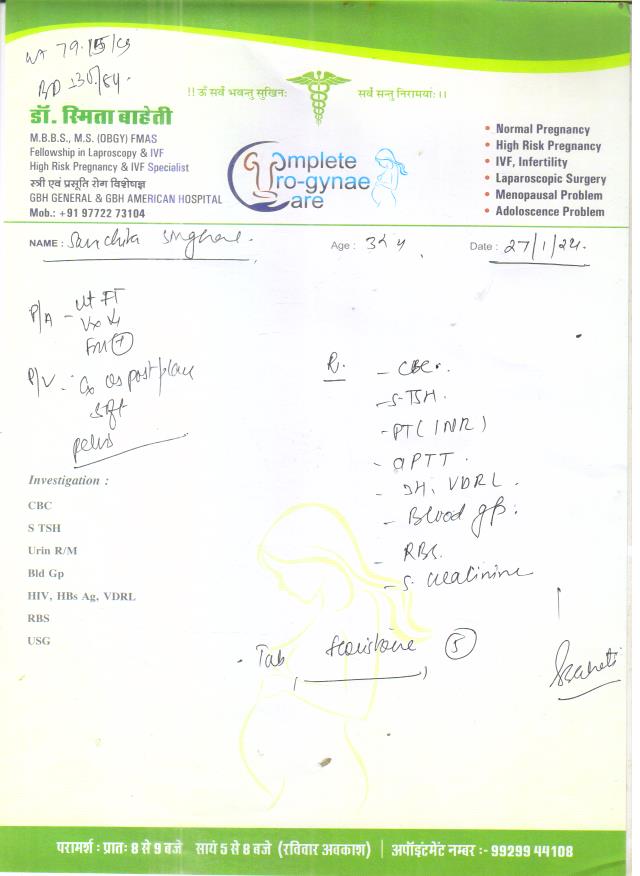 Wt 79.15 kg
BP 130/84
!! ॐ सर्वे भवन्तु सुखिनः सर्वे सन्तु निरामयाः ।।
डॉ. स्मिता बाहेती
M.B.B.S., M.S. (OBGY) FMAS
Fellowship in Laproscopy & IVF
High Risk Pregnancy & IVF Specialist
स्त्री एवं प्रसूति रोग विशेषज्ञ
GBH GENERAL & GBH AMERICAN HOSPITAL
Mob.: +91 97722 73104
Complete
Uro-gynae
Care
• Normal Pregnancy
• High Risk Pregnancy
• IVF, Infertility
• Laparoscopic Surgery
• Menopausal Problem
• Adoloscence Problem
NAME : Sanchita Singhal. Age : 32 y Date : 27/1/24.
P/A - Ut FT
Vx
FM (+)
P/V - Cx os post place
soft
pelvis
R. - CBC.
- S. TSH.
- PT (INR)
- aPTT.
- VDRL.
- Blood gp.
- RBS.
- S. Creatinine
Investigation :
CBC
S TSH
Urin R/M
Bld Gp
HIV, HBs Ag, VDRL
RBS
USG
. Tab (5)
परामर्श : प्रातः 8 से 9 बजे सायं 5 से 8 बजे (रविवार अवकाश) | अपॉइंटमेंट नम्बर :- 99299 44108